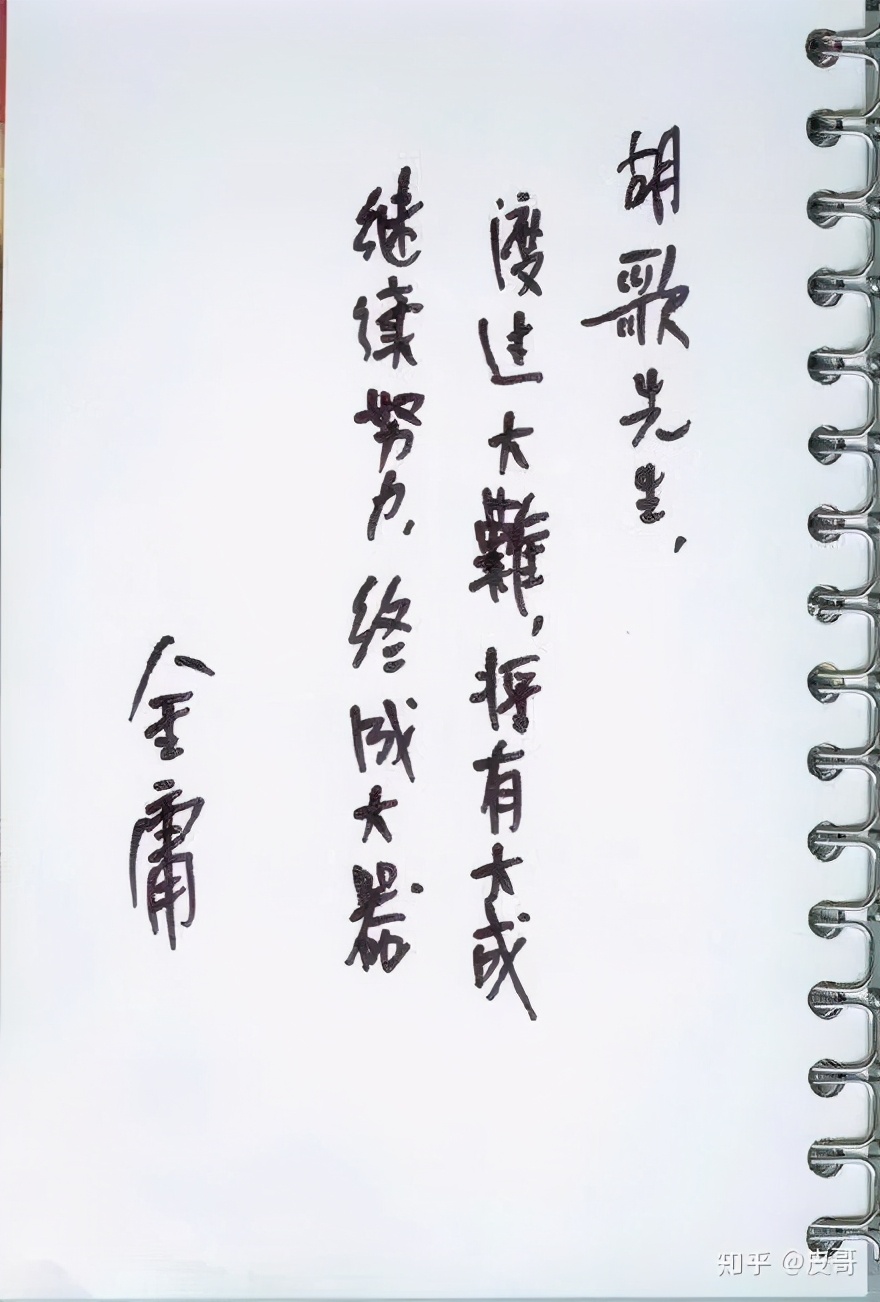 胡歌先生，
渡过大難，将有大成
继续努力，终成大器
金庸
知乎 @皮哥